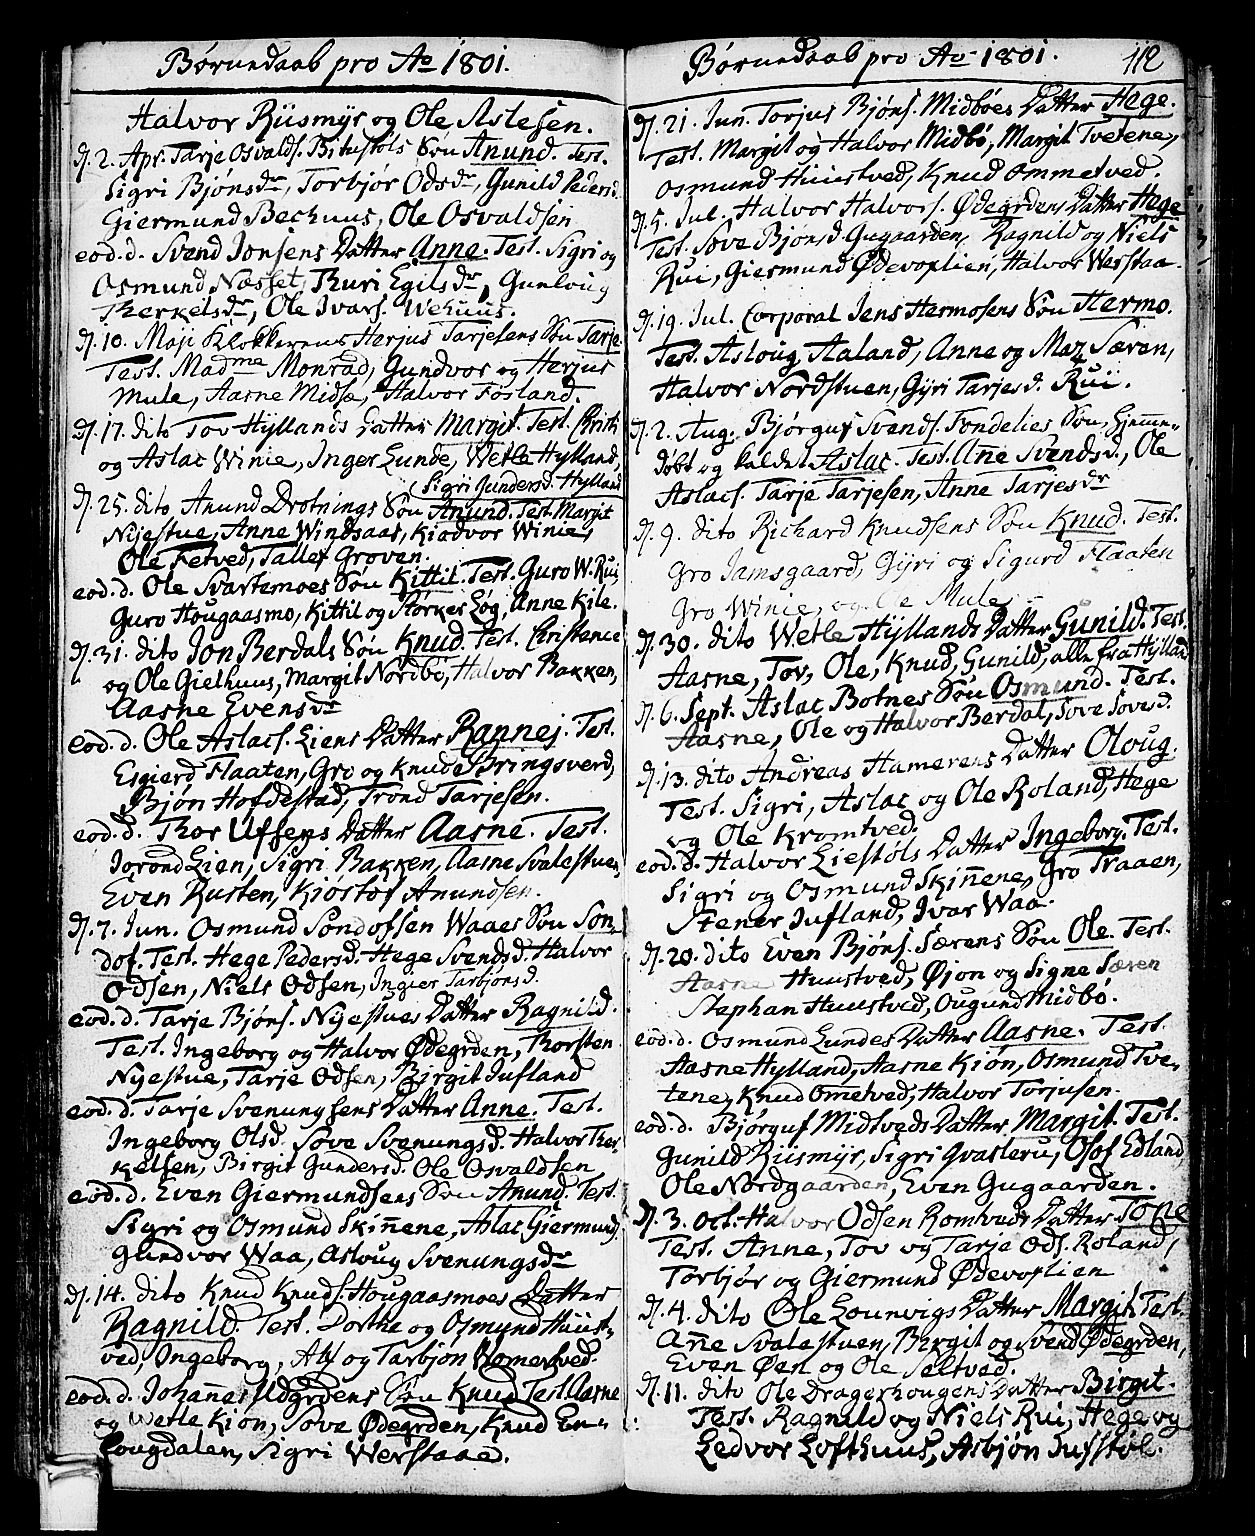 Børnedaab pro Ao 1801.
Halvor Riismyr og Ole Aslesen.
D. 2. Apr. Tarje Osvalds. Bitustöls Søn Anund. Test.
Sigri Bjønsdr, Torbjør Odsdr, Gunild Pedersd.
Giermund Bechuus, Ole Osvaldsen
eod. d. Svend Jonsens Datter Anne. Test. Sigri og
Osmund Næsset, Thuri Egilsdr, Gunloug
Therkelsdr, Ole Ivars. Wehuus.
D. 10. Maji Klokkerens Herjus Tarjesens Søn Tarje
Test. Madme Monrad, Gundvor og Herjus
Mule, Aasne Midsø, Halvor Fosland.
D. 17. dito Tov Hyllands Datter Margit. Test. Christi
og Aslac Winie, Inger Lunde, Wetle Hylland,
(Sigri Gundersd. Hylland
D. 25. dito Anund Drotnings Søn Anund. Test. Margit
Nijestue, Anne Windsaas, Kiødvor Winie,
Ole Fetved, Tallef Groven.
eod. d. Ole Svartemoes Søn Kittil. Test. Guro W. Rui,
Guro Hougaasmo, Kittil og Størker Løg, Anne Kile.
D. 31. dito Jon Berdals Søn Knud. Test. Christence
og Ole Gielhuus, Margit Nordbø, Halvor Bakken,
Aasne Evensdr
eod. d. Ole Aslacs. Liens Datter Rannej. Test.
Esgierd Flaaten, Gro og Knud Bringsverd,
Bjøn Hofdestad, Trond Tarjesen.
eod. d. Thor Uffsens Datter Aasne. Test.
Jorond Lien, Sigri Bakken, Aasne Svalestuen,
Even Rusten, Kiøstof Anundsen.
D. 7. Jun. Osmund Sondofsen Waaes Søn Son-
dof. Test. Hege Pedersd. Hege Svendsd. Halvor
Odsen, Niels Odsen, Ingier Tarbjønsd.
eod. d. Tarje Bjøns. Nyestues Datter Ragnild.
Test. Ingeborg og Halvor Ødegrden, Thorsten
Nyestue, Tarje Odsen, Birgit Jufland
eod. d. Tarje Svenungsens Datter Anne. Test.
Ingeborg Olsd. Søve Svenungsd. Halvor Ther-
kelsen, Birgit Gundersd. Ole Osvaldsen
eod. d. Even Giermundsens Søn Anund. Test.
Sigri og Osmund Skiñene, Aslac Giermunds.
Gundvor Waa, Asloug Svenungsdr
D. 14. dito Knud Knuds. Hougaasmoes Datter
Ragnild. Test. Dorthe og Osmund Huust-
ved, Ingeborg, Alf og Tarbjøn Womertved.
eod. d. Johañes Udgrdens Søn Knud Test. Aasne
og Wetle Kiøn, Søve Ødegrden, Knud En-
lougdalen, Sigri Werstaae.
Børnedaab pro Ao 1801. 112
D. 21. Jun. Torjus Bjøns. Midbøes Datter Hege.
Test. Margit og Halvor Midbø, Margit Tvetene,
Osmund Huustved, Knud Ommetved.
D. 5. Jul. Halvor Halvors. Ødegrdens Datter Hege
Test. Søve Bjønsd. Gugaarden, Ragnild og Niels
Rui, Giermund Ødevoxlien, Halvor Werstaa.
D. 19. Jul. Corporal Jens Hermosens Søn Hermo.
Test. Asloug Aaland, Anne og Maz Særen,
Halvor Nordstuen, Gyri Tarjesd. Rui.
D. 2. Aug. Bjørguf Svends. Fondelies Søn, Hjemme-
døbt og kaldet Aslac. Test. Añe Svendsd., Ole
Aslacs. Tarje Tarjesen, Anne Tarjesdr
D. 9. dito Richard Knudsens Søn Knud. Test.
Gro Jamsgaard, Gyri og Sigurd Flaaten
Gro Winie, og Ole Mule
D. 30. dito Wetle Hyllands Datter Gunild. Test.
Aasne, Tov, Ole, Knud, Gunild, alle fra Hylland
D. 6. Sept. Aslac Botnes Søn Osmund. Test.
Aasne, Ole og Halvor Berdal, Søve Sovesd.
D. 13. dito Andreas Hamerens Datter Oloug.
Test. Sigri, Aslac og Ole Roland, Hege
og Ole Kromtved.
eod. d. Halvor Liestöls Datter Ingeborg. Test.
Sigri og Osmund Skiñene, Gro Traaen,
Stener Jufland, Ivar Waa.
D. 20. dito Even Bjøns. Særens Søn Ole. Test.
Aasne Huustved, Øjon og Signe Særen
Stephan Huustved, Ougund Midbø.
eod. d. Osmund Lundes Datter Aasne. Test.
Aasne Hylland, Aasne Kiøn, Osmund Tve-
tene, Knud Ometved, Halvor Torjusen.
eod. d. Bjørguf Midtveds Datter Margit. Test.
Gunild Riismyr, Sigri Qvasteru, Osof Edland,
Ole Nordgaarden, Even Gugaarden.
D. 3. Oct. Halvor Odsen Romtveds Datter Tone
Test. Anne, Tov og Tarje Ods. Roland,
Torbjør og Giermund Ødevoxlien
D. 4. dito Ole Lounvigs Datter Margit Test.
Añe Svalestuen, Birgit og Svend Ødegrden,
Even Øen og Ole Seltved.
D. 11. dito Ole Dragerhougens Datter Birgit.
Test. Ragnild og Niels Rui, Hege og
Ledvor Lofthuus, Asbjøn Jufstøl.